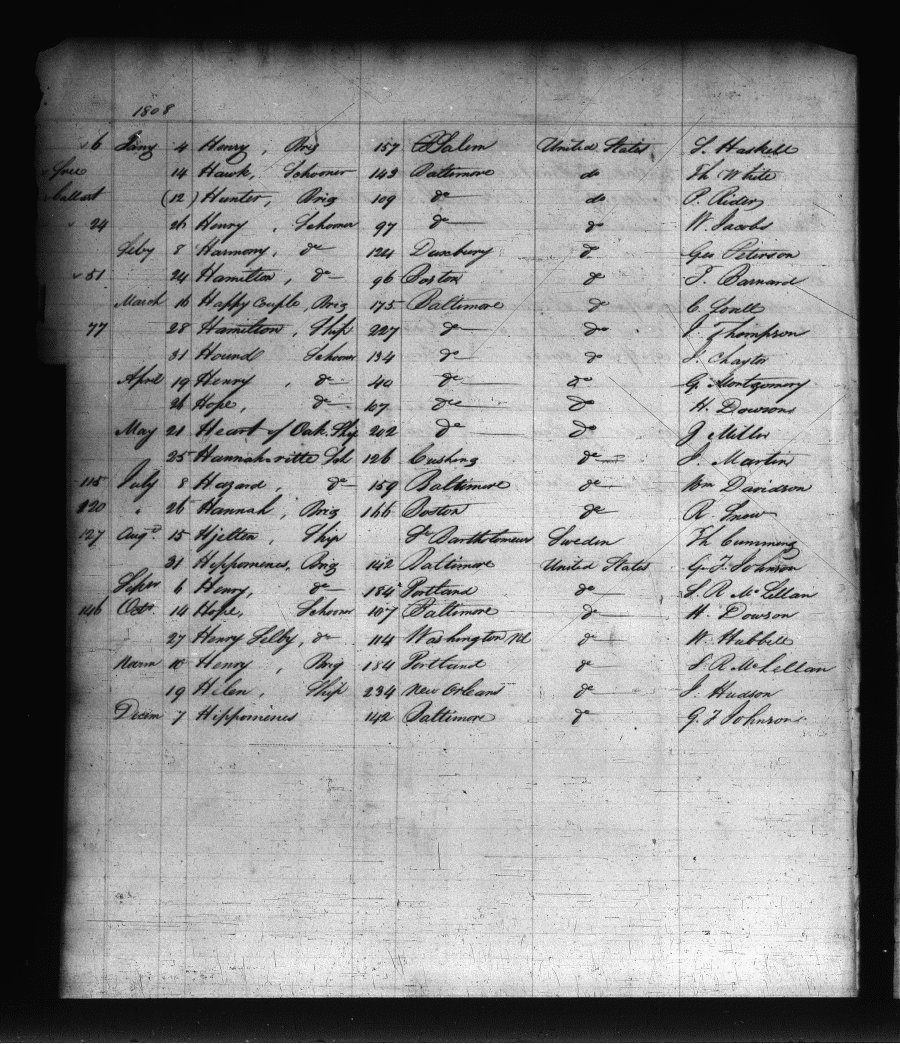 1808
6 Jany 4 Henry, Brig 157 Salem United States S. Haskell
free 14 Hawk, Schooner 143 Baltimore do Th White
ballast (12) Hunter, Brig 109 do do P. Rider
24 26 Henry, Schooner 97 do do W. Jacobs
Feby 8 Harmony, do 124 Duxbury do Geo Peterson
51 24 Hamilton, do 96 Boston do T. Barnard
March 16 Happy Couple, Brig 175 Baltimore do C.
77 28 Hamilton, Ship 227 do do J. Thompson
31 Hound Schooner 134 do do J. Chaytor
April 19 Henry, do 40 do do G. Montgomery
26 Hope, do 107 do do H. Dowson
May 21 Heart of Oak, Ship 202 do do J Miller
25 Hannah-ritte Sch 126 Cushing do J. Martin
115 July 8 Hazard, do 159 Baltimore do Wm Davidson
120 " 26 Hannah, Brig 166 Boston do R. Snow
127 Augt 15 Hjelten, Ship St Bartholomeus Sweden Th Cumming
31 Hippomenes, Brig 142 Baltimore United States G. F. Johnson
Septr 6 Henry, do 184 Portland do S. R McLellan
146 Octr 14 Hope, Schooner 107 Baltimore do H. Dowson
27 Henry Selby, do 114 Washington do W. Hubbell
Novm 10 Henry, Brig 184 Portland do S R McLellan
19 Helen, Ship 234 New Orleans do J. Hudson
Decem 7 Hippomenes 142 Baltimore do G. F Johnson